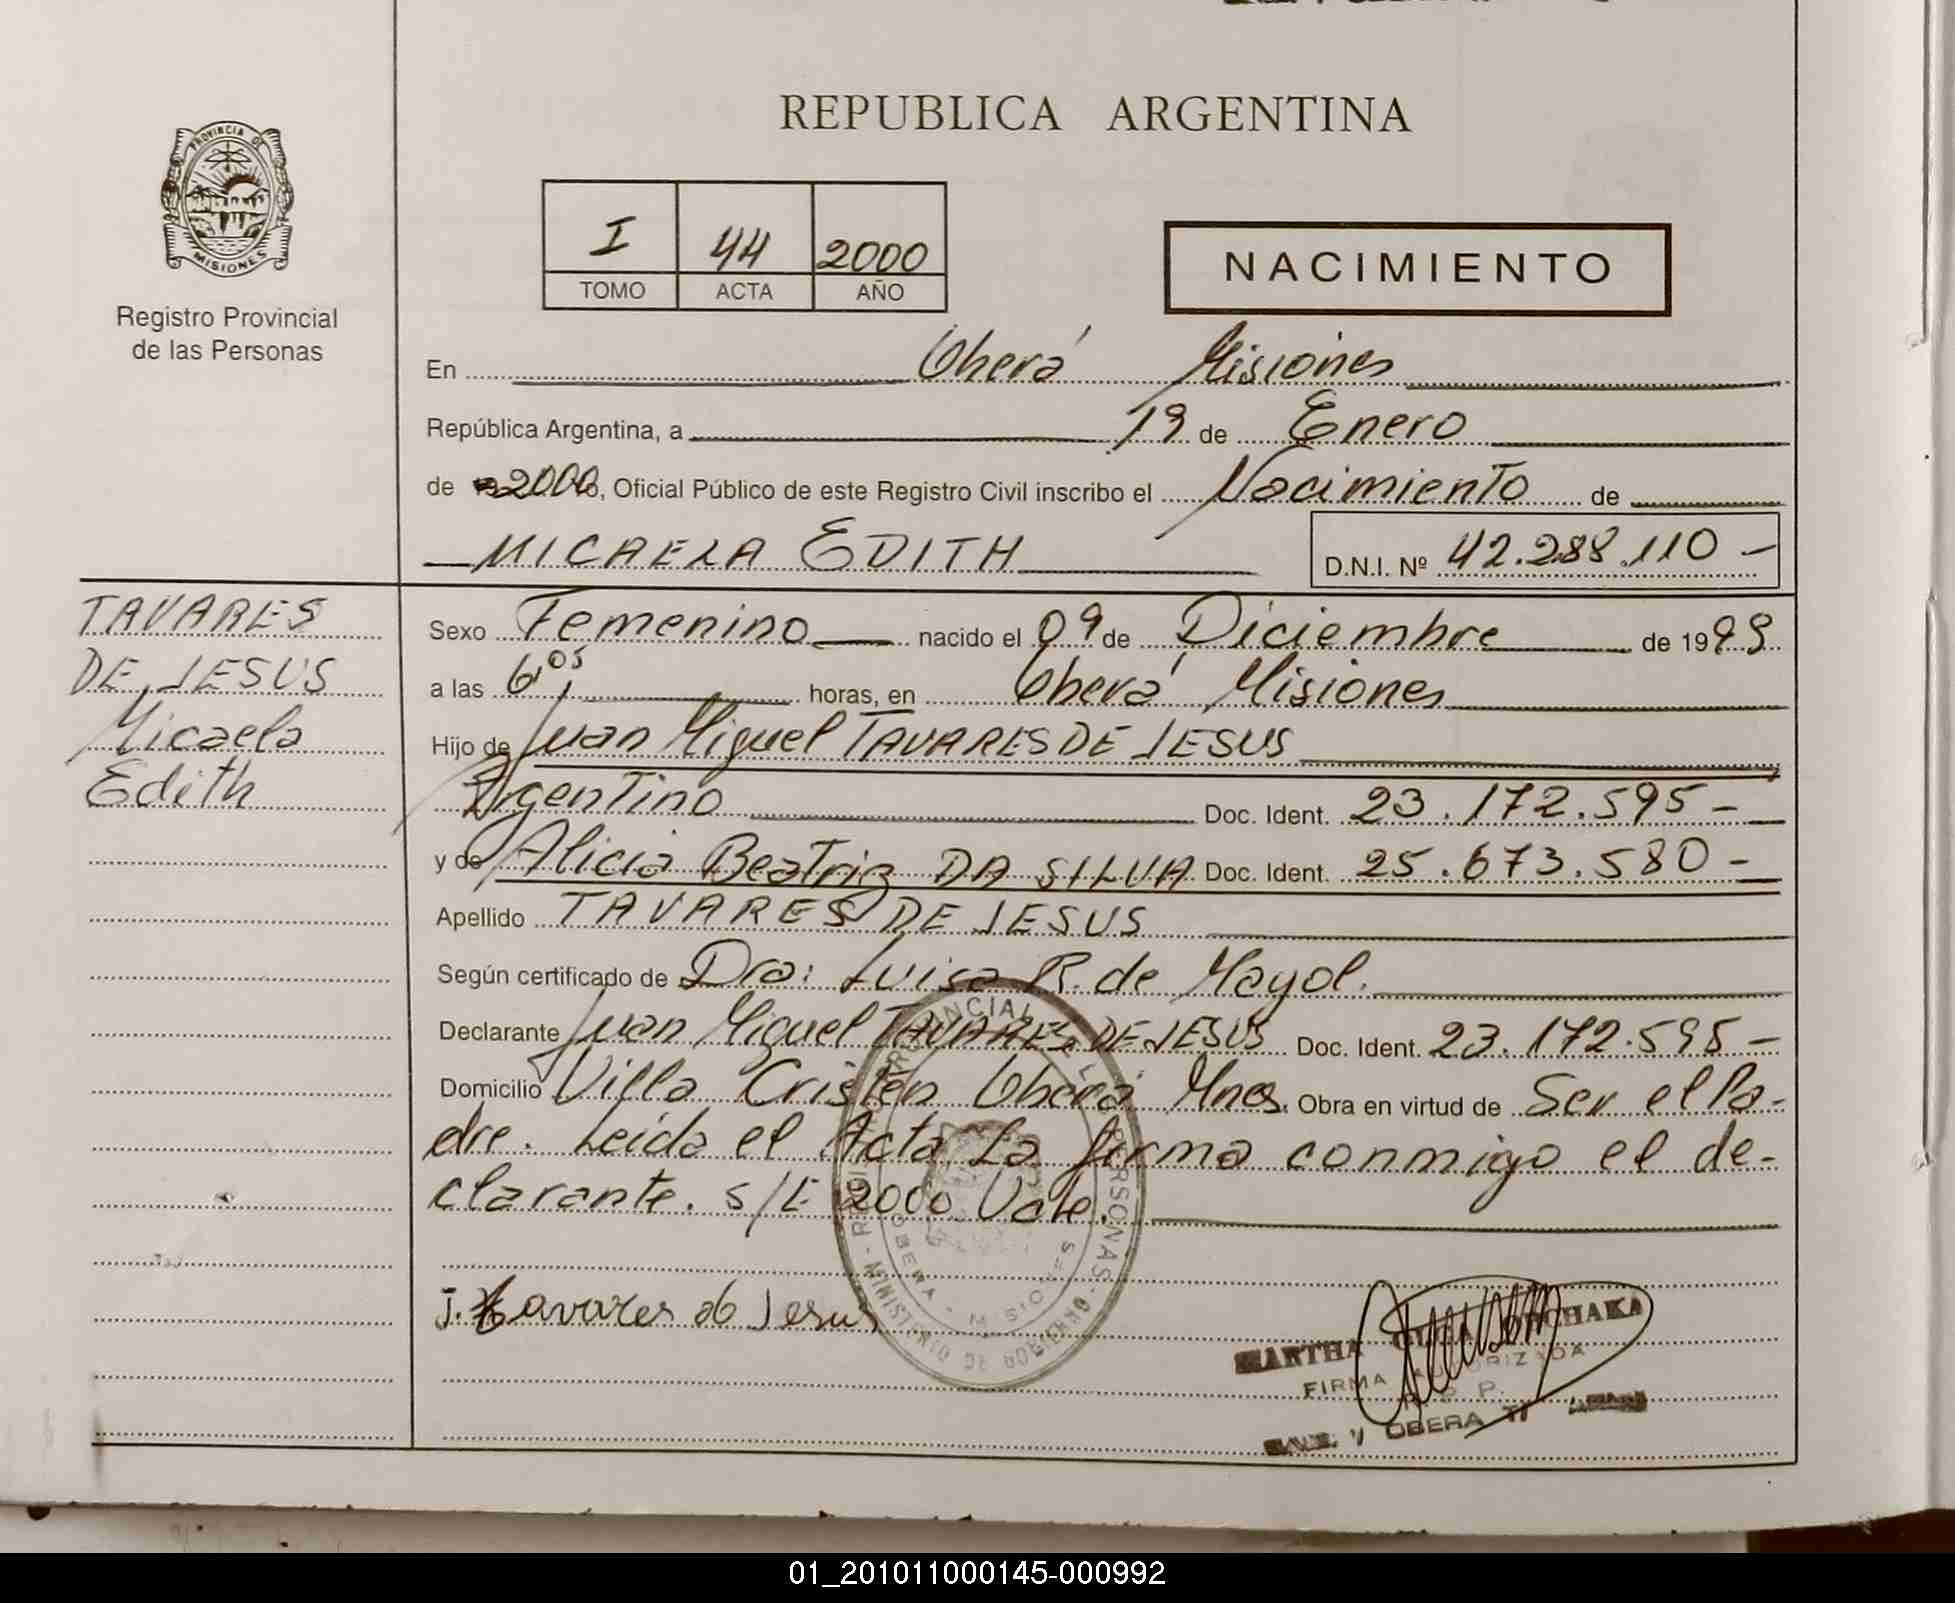 REPUBLICA ARGENTINA
PROVINCIA DE
MISIONES
Registro Provincial
de las Personas
I 44 2000
TOMO ACTA AÑO
NACIMIENTO
En Oberá Misiones
República Argentina, a 19 de Enero
de 2000, Oficial Público de este Registro Civil inscribo el Nacimiento de
MICAELA EDITH D.N.I. Nº 42.288.110 -
TAVARES
DE JESUS
Micaela
Edith
Sexo Femenino nacido el 09 de Diciembre de 1999
a las 6,05 horas, en Oberá Misiones
Hijo de Juan Miguel TAVARES DE JESUS
Argentino Doc. Ident. 23.172.595 -
y de Alicia Beatriz DA SILVA Doc. Ident. 25.673.580 -
Apellido TAVARES DE JESUS
Según certificado de Dra: Luisa R. de Mayol.
Declarante Juan Miguel TAVARES DE JESUS Doc. Ident. 23.172.595 -
Domicilio Villa Cristen Oberá Mnes. Obra en virtud de Ser el Pa-
dre. Leida el Acta La firma conmigo el de-
clarante. S/E 2000 Vale.
J. Tavares de Jesus
MARTHA
FIRMA AUTORIZADA
R. P. P.
OBERA
01_201011000145-000992